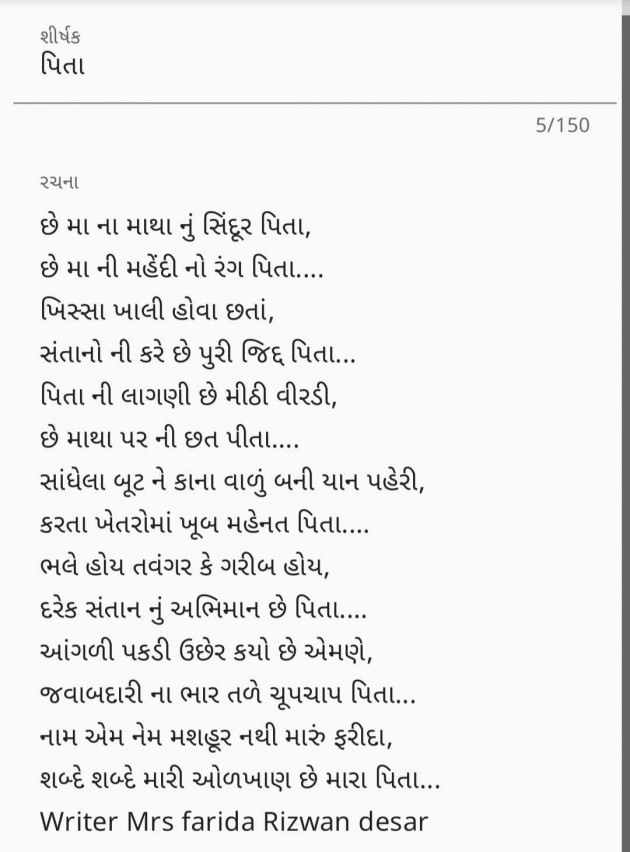 શીર્ષક
પિતા
5/150
રચના
છે મા ના માથા નું સિંદૂર પિતા,
છે મા ની મહેંદી નો રંગ પિતા....
ખિસ્સા ખાલી હોવા છતાં,
સંતાનો ની કરે છે પુરી જિદ્દ પિતા...
પિતા ની લાગણી છે મીઠી વીરડી,
છે માથા પર ની છત પીતા....
સાંધેલા બૂટ ને કાના વાળું બની યાન પહેરી,
કરતા ખેતરોમાં ખૂબ મહેનત પિતા....
ભલે હોય તવંગર કે ગરીબ હોય,
દરેક સંતાન નું અભિમાન છે પિતા....
આંગળી પકડી ઉછેર કયો છે એમણે,
જવાબદારી ના ભાર તળે ચૂપચાપ પિતા...
નામ એમ નેમ મશહૂર નથી મારું ફરીદા,
શબ્દે શબ્દે મારી ઓળખાણ છે મારા પિતા...
Writer Mrs farida Rizwan desar